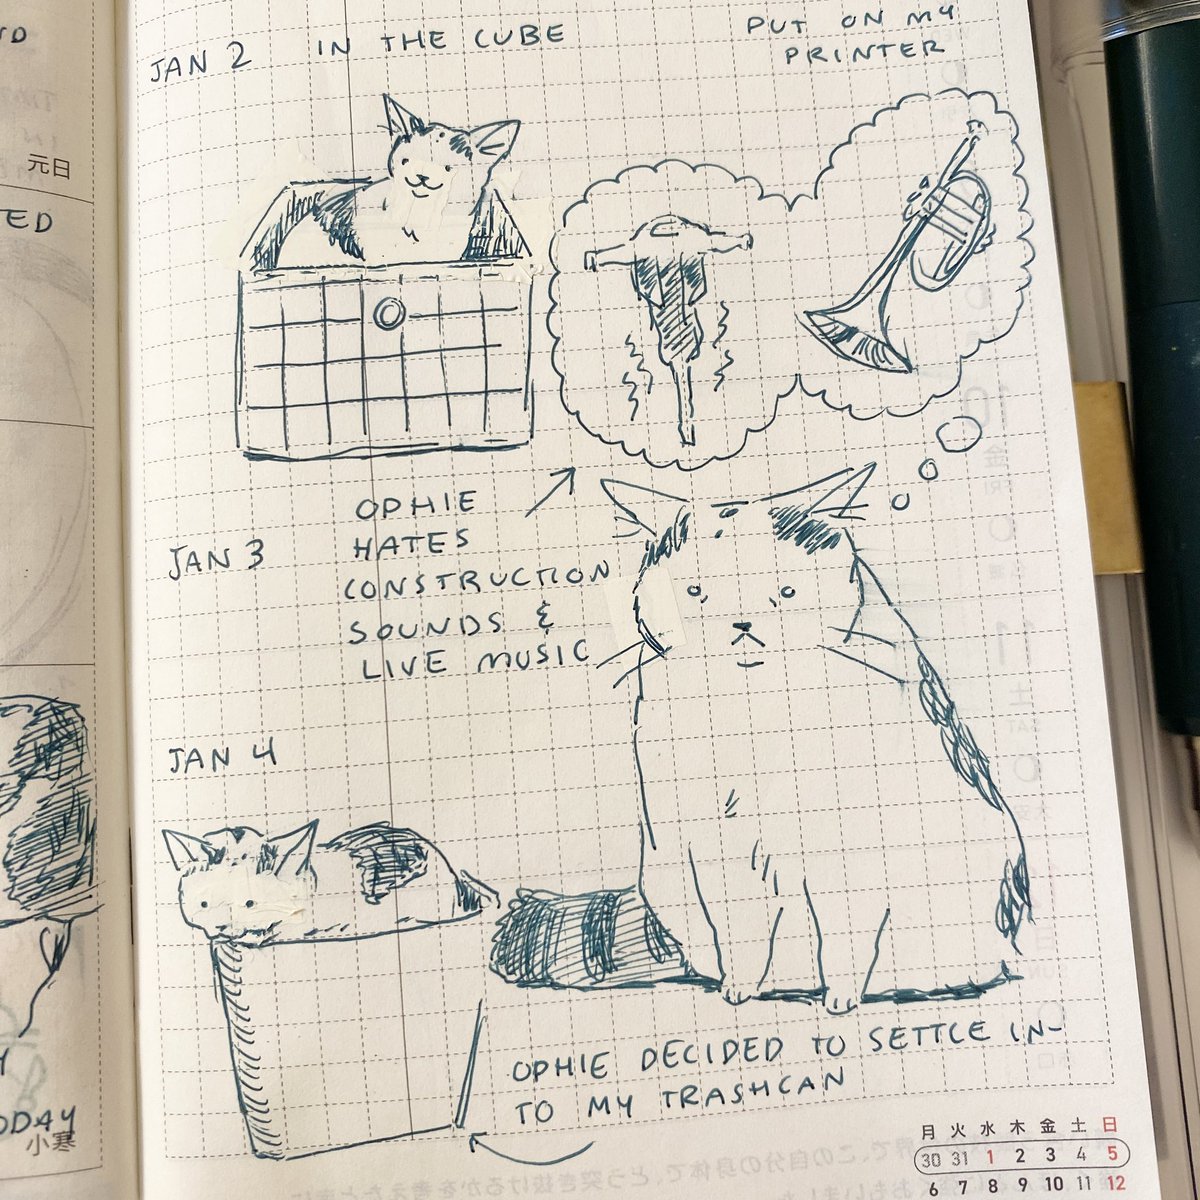 JAN 2
IN THE CUBE
PUT ON MY
PRINTER
元日
TED
JAN 3
OPHIE
HATES
CONSTRUCTION
SOUNDS &
LIVE MUSIC
JAN 4
OPHIE DECIDED TO SETTLE IN-
TO MY TRASHCAN
ODAY
小寒
月 火 水 木 金 土 日
30 31 1 2 3 4 5
6 7 8 9 10 11 12